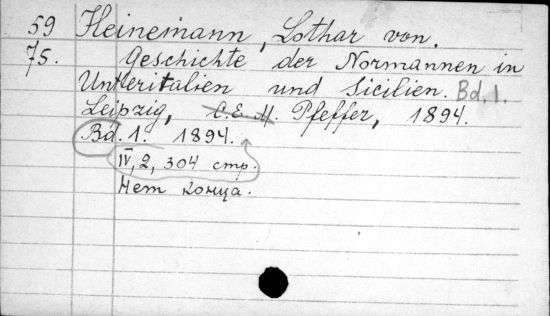 59 Heinemann, Lothar von.
75. Geschichte der Normannen in
Unteritalien und Sicilien. Bd. 1.
Leipzig, C. E. M. Pfeffer, 1894.
Bd. 1. 1894.
IV, 2, 304 стр.
Нет конца.